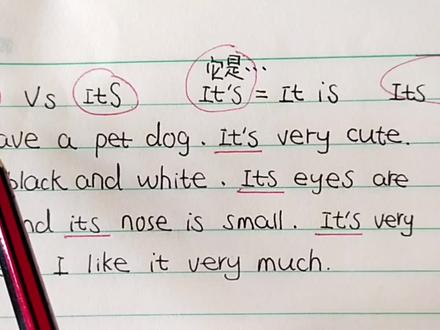 它是…
Vs Its It's = It is Its
ave a pet dog. It's very cute.
black and white. Its eyes are
nd its nose is small. It's very
I like it very much.